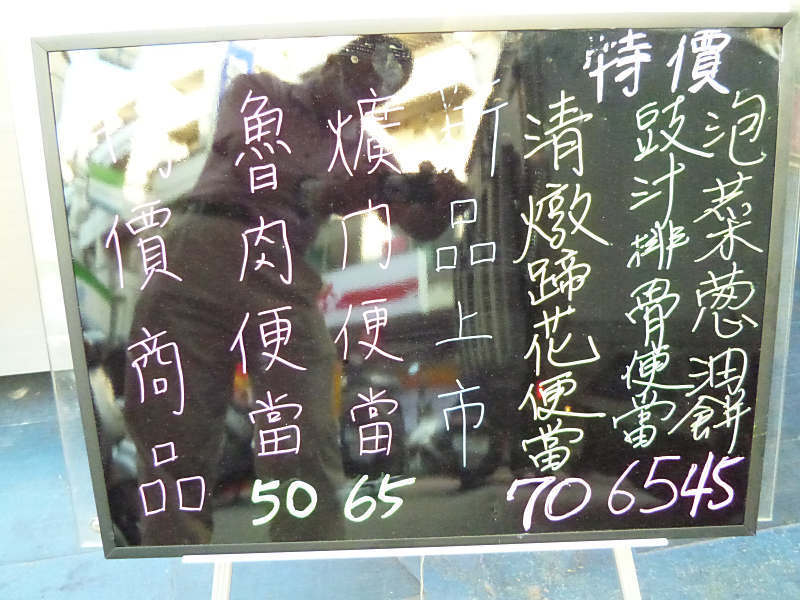 特價
泡菜葱油餅45
豉汁排骨便當65
清燉蹄花便當70
新品上市
爌肉便當65
魯肉便當50
特價商品